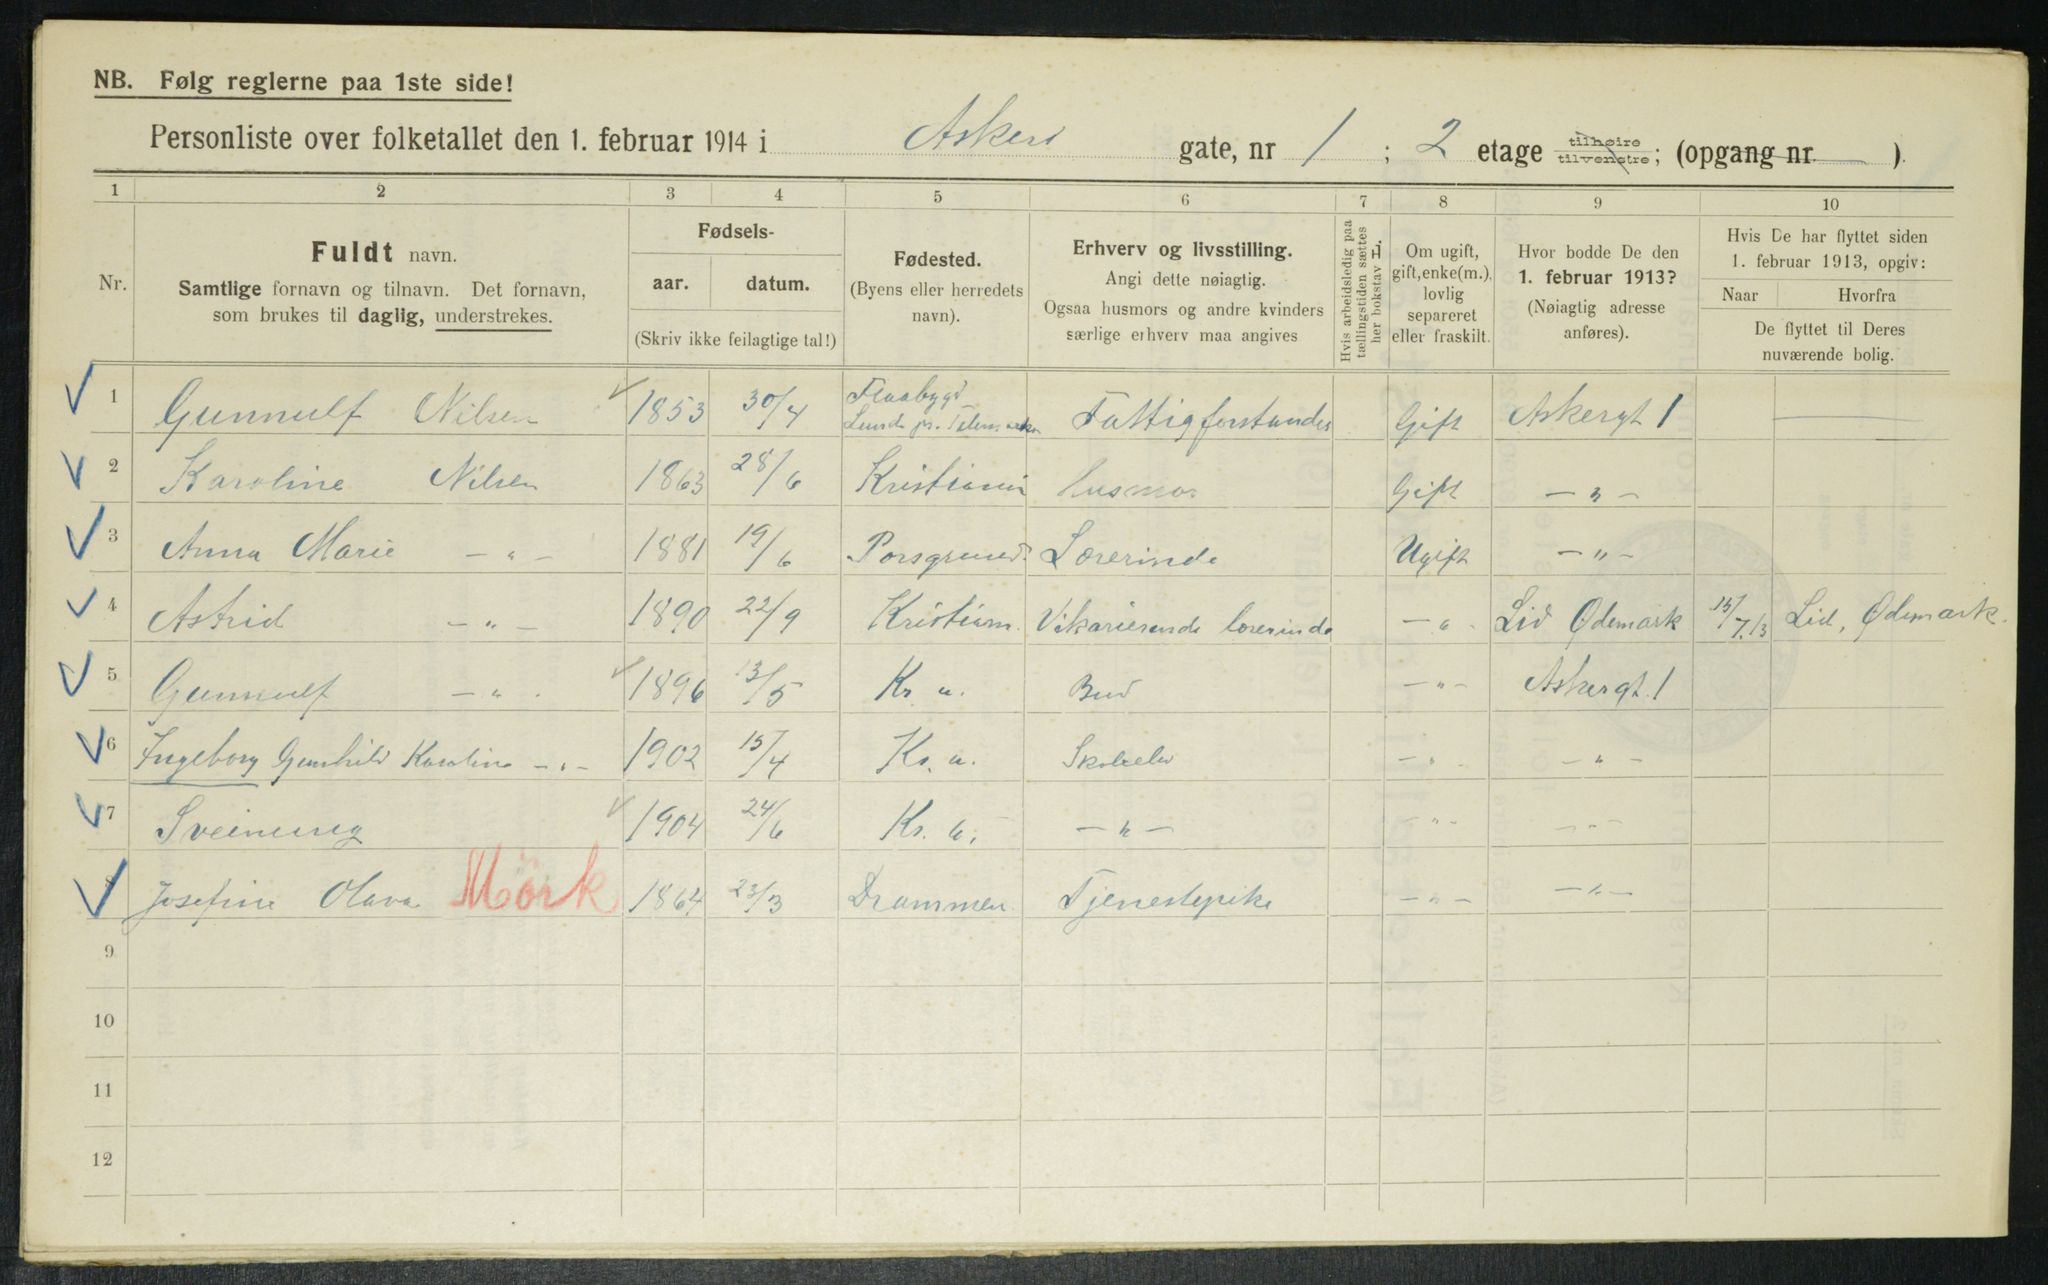 NB. Følg reglerne paa 1ste side!
Personliste over folketallet den 1. februar 1914 i Askers gate, nr 1 ; 2 etage tilhøire tilvenstre; (opgang nr. — ).
1 2 3 4 5 6 7 8 9 10
Nr.
Fuldt navn.
Samtlige fornavn og tilnavn. Det fornavn,
som brukes til daglig, understrekes.
Fødsels-
aar. datum.
(Skriv ikke feilagtige tal!)
Fødested.
(Byens eller herredets
navn).
Erhverv og livsstilling.
Angi dette nøiagtig.
Ogsaa husmors og andre kvinders
særlige erhverv maa angives
Hvis arbeidsledig paa
tællingstiden sættes
her bokstav L.
Om ugift,
gift, enke(m.),
lovlig
separeret
eller fraskilt.
Hvor bodde De den
1. februar 1913?
(Nøiagtig adresse
anføres).
Hvis De har flyttet siden
1. februar 1913, opgiv:
Naar Hvorfra
De flyttet til Deres
nuværende bolig.
1 Gunnulf Nilsen 1853 30/4 Flaabygd Lunde pr. Telemarken Fattigforstander Gift Askergt 1 —
2 Karoline Nilsen 1863 28/6 Kristiania Husmor Gift — " —
3 Anna Marie — " — 1881 19/6 Porsgrund Lærerinde Ugift — " —
4 Astrid — " — 1890 22/9 Kristiania. Vikarierende lærerinde — " — Lid Ødemark 15/7.13 Lid, Ødemark.
5 Gunnulf — " — 1896 13/5 Kr. a. Bud — " — Askergt. 1
6 Ingeborg Gunhild Karoline — " — 1902 15/4 Kr. a. Skoleelev — " — — " —
7 Sveinung 1904 24/6 Kr. a. — " — — " — — " —
8 Josefine Olava Mörk 1864 23/3 Drammen. Tjenestepike — " — — " —
9
10
11
12